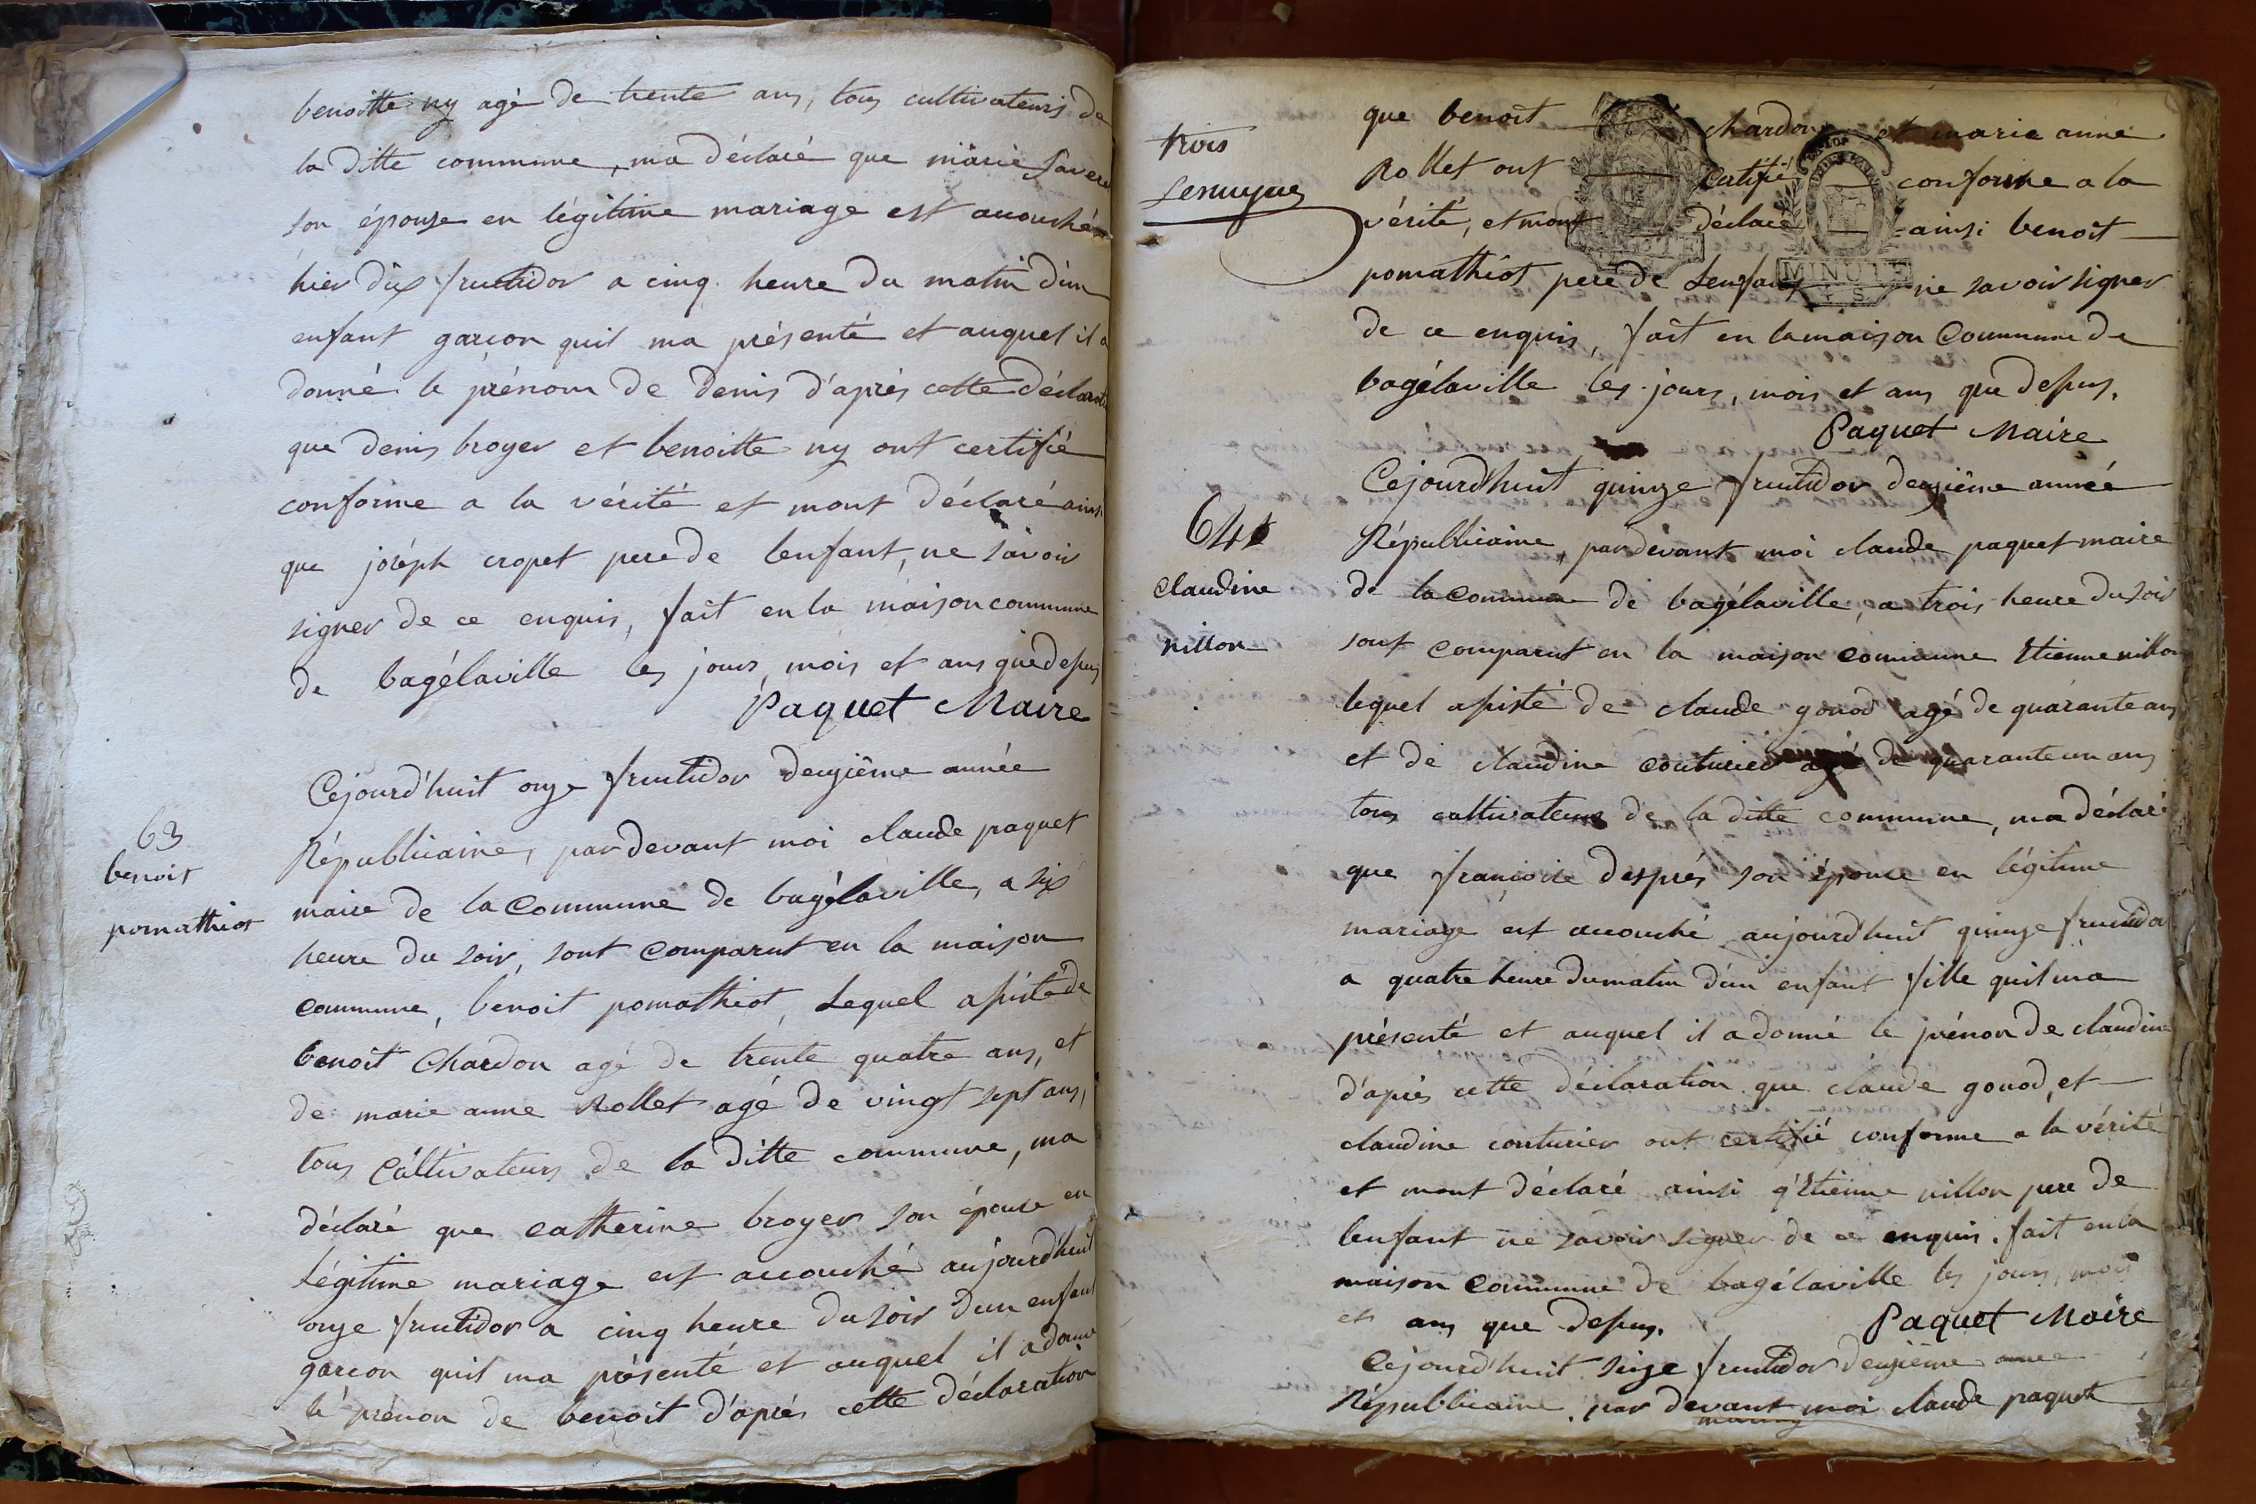 benoitte ny agé de trente ans, tous cultivateurs de
la ditte commune, ma déclaré que marie
son épouse en légitime mariage est accouché
hier dix fructidor a cinq heure du matin d'un
enfant garçon quil ma présenté et auquel il a
donné le prénom de denis d'aprés cette déclarati
que denis broyer et benoitte ny ont certifié
conforme a la vérité et mont déclaré ainsi
que joséph cropet pere de lenfant, ne savoir
signer de ce enquis, fait en la maison commune
de bagélaville les jours, mois et ans que dessus
Paquet Maire
63
benoit
pomathiot
Cejourd'huit onze fructidor deuzième année
Républicaine, par devant moi claude paquet
maire de la Commune de bagélaville, a six
heure du soir, sont comparut en la maison
commune, benoit pomathiot, Lequel assisté de
benoit Chardon agé de trente quatre ans, et
de marie anne Rollet agé de vingt sept ans,
tous cultivateurs de la ditte commune, ma
déclaré que catherine broyer son épouse en
Légitime mariage est accouché aujourd'huit
onze fructidor a cinq heure du soir d'un enfant
garcon quil ma présenté et auquel il a donné
le prénon de benoit d'aprés cette déclaration
trois
que benoit chardon et marie anne
Rollet ont Certifié conforme a la
vérité, et mont déclaré ainsi benoit
pomathiot pere de Lenfant ne savoir signer
de ce enquis, fait en la maison Commune de
bagélaville les jours, mois et ans que dessus,
Paquet Maire
64
claudine
nillon
Cejourd'huit quinze fructidor deuzième année
Républicaine, par devant moi claude paquet maire
de la commune de bagélaville, a trois heure du soir
sont comparut en la maison commune Etienne nillon
lequel assisté de claude gonod agé de quarante ans
et de claudine couturier agé de quarante un ans
tous cultivateurs de la ditte commune, ma déclaré
que françoise després son épouse en légitime
mariage est accouché aujourd'huit quinze fructidor
a quatre heure du matin d'un enfant fille quil ma
présenté et auquel il a donné le prénon de claudine
d'aprés cette déclaration que claude gonod, et
claudine couturier ont certifié conforme a la vérité
et mont déclaré ainsi q'Etienne nillon pere de
lenfant ne savoir signer de ce enquis. fait en la
maison commune de bagélaville les jours, mois
et ans que dessus. Paquet Maire
Cejourd'huit seize fructidor deuzième année
Républicaine, par devant moi claude paquet
MINUTE